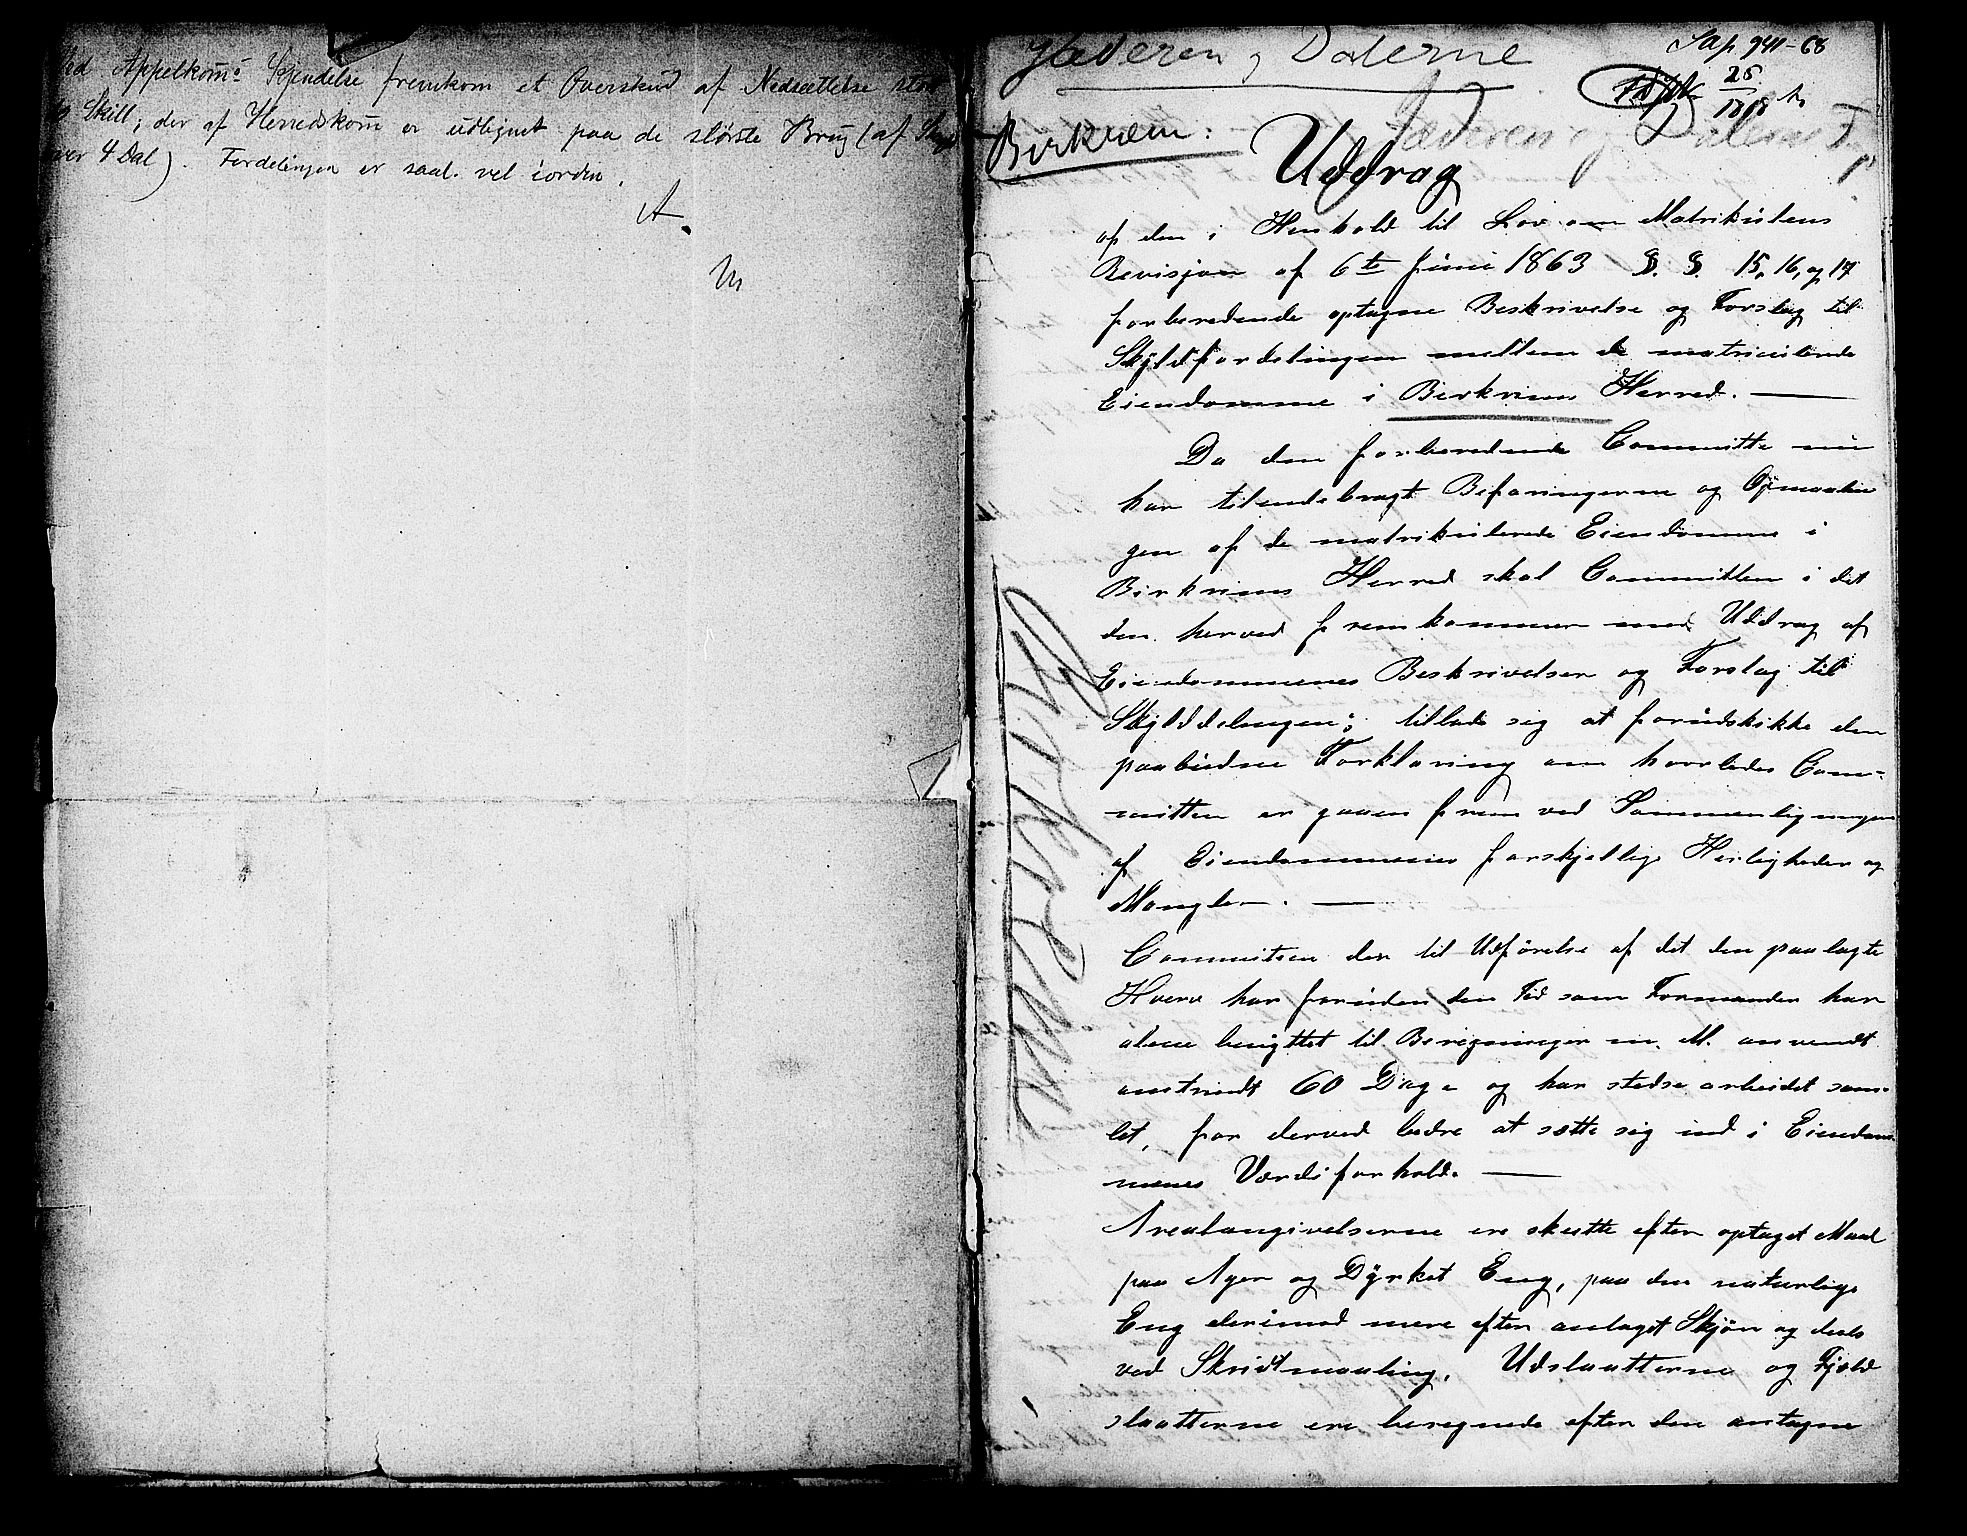 Ved Appelkomˢ Kjendelse fremkom et Overskud af Nedsættelse stor
Skill, der af Herredskom er udlignet paa de største Brug (af
over 4 Dal). Fordelingen er saal. vel iorden.
A.
Jæderen og Dalerne
Jap. 941-68
25
1868
Jæderen og Dalerne
Birkrem:
Uddrag
af den i Henhold til Lov om Matrikulens
Revisjon af 6te Juni 1863 §. §. 15, 16, og 17
forberedende optagne Beskrivelse og Forslag til
Skyldfordelingen mellem de matriculerede
Eiendomme i Birkrims Herred. —
Da den forberedende Committe nu
har tilendebragt Befaringerne og Opmaalin
gen af de matrikulerede Eiendomme i
Birkrims Herred skal Committen i det
den herved fremkommer med Uddrag af
Eiendommenes Beskrivelser og Forslag til
Skylddelingen; tillade sig at forudskikke den
paabudne Forklaring om hvorledes Com-
mitten er gaaen frem ved Sammenligningen
af Eiendommenes forskjellige Herligheder og
Mangler. —
Committeen der til Udførelse af det den paalagte
Hverv har foruden den Tid som Formanden har
alene benyttet til Beregninger m. M. anvendt
omtrindt 60 Dage og har stedse arbeidet sam-
let, for derved bedre at sætte sig ind i Eiendom
menes Værdiforhold. —
Arealangivelserne ere skeete efter optaget Maal
paa Ager og Dyrket Eng, paa den naturlige
Eng derimod mere efter anlaget Skjøn og deels
ved Skridtmaaling. Udslaatterne og Fjeld
slaatterne ere beregnede efter den antagne
Birkrem